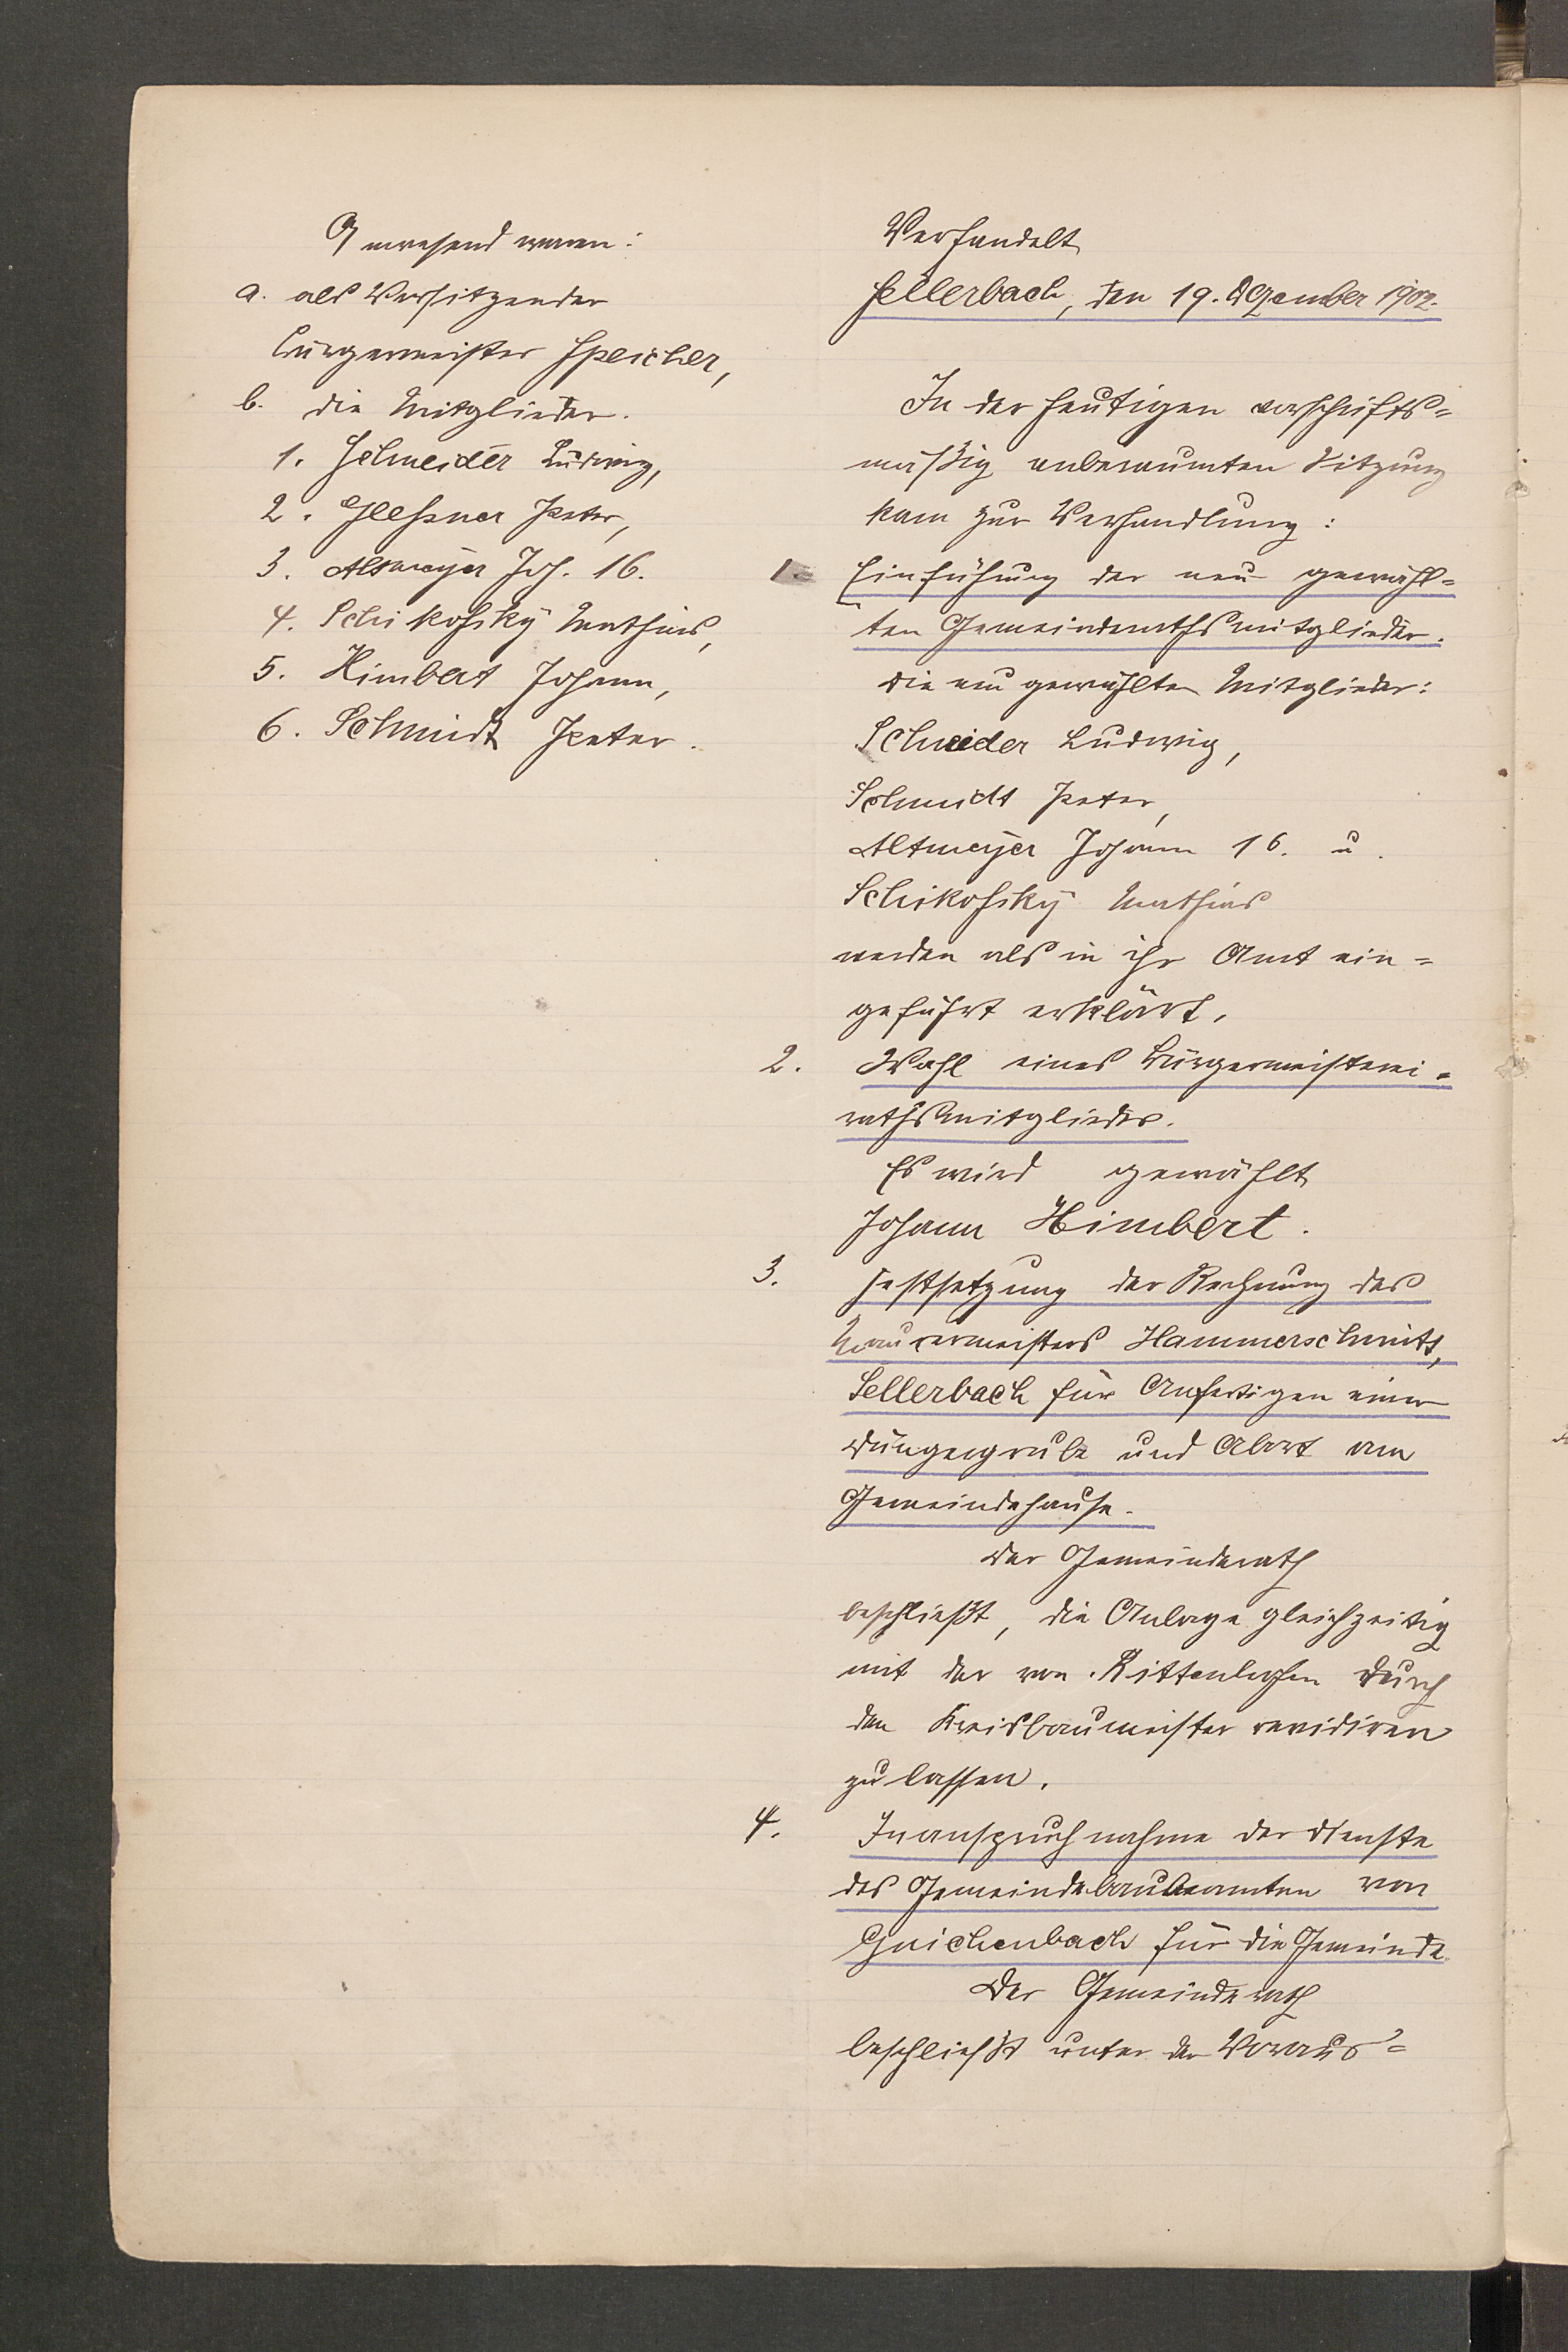 Anwesend waren:
a. als Vorsitzender
Bürgermeister Speicher,
b. die Mitglieder.
1. Schneider Ludwig,
2. Glessner Peter,
3. Altmeyer Joh. 16.
4. Schikofsky Mathias,
5. Himbert Johann,
6. Schmidt Peter.
Verhandelt
Sellerbach, den 19. Dezember 1902.
In der heutigen vorschrifts=
mäßig anberaumten Sitzung
kam zur Verhandlung:
1. Einführung der neu gewähl=
ten Gemeinderathsmitglieder.
Die neu gewählten Mitglieder:
Schneider Ludwig,
Schmidt Peter,
Altmeyer Johann 16. u.
Schikofsky Mathias
werden als in ihr Amt ein=
geführt erklärt.
2. Wahl eines Bürgermeisterei=
rathsmitgliedes.
Es wird gewählt
Johann Himbert.
3. Festsetzung der Rechnung des
Maurermeisters Hammerschmitt,
Sellerbach für Anfertigen einer
Düngergrube und Abort am
Gemeindehause.
Der Gemeinderath
beschließt, die Anlage gleichzeitig
mit der von Rittenhofen durch
den Kreisbaumeister revidiren
zu lassen.
4. Inanspruchnahme der Dienste
des Gemeindebaubeamten von
Guichenbach für die Gemeinde.
Der Gemeinderath
beschließt unter der Voraus=